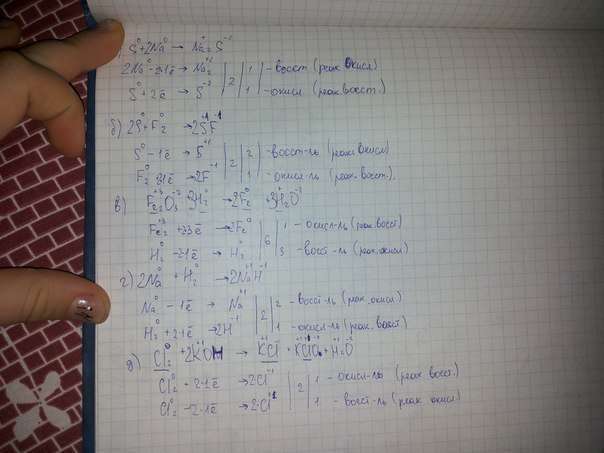 S⁰+2Na⁰ → Na₂⁺S⁻²
2Na⁰-2·1ē → Na₂⁺¹ | 2 | 1 - восст (реак окисл)
S⁰+2ē → S⁻² | 1 - окисл (реак. восст.)
б) 2S⁰+F₂⁰ → 2S⁺¹F⁻¹
S⁰-1ē → S⁺¹ | 2 | 2 - восст-ль (реак. окисл)
F₂⁰ 2·1ē → 2F⁻¹ | 1 - окисл-ль (реак. восст.).
в) Fe₂⁺³O₃⁻² + 3H₂⁰ → 2Fe⁰ + 3H₂O
Fe₂⁺³ +2·3ē → 2Fe⁰ | 6 | 1 - окисл-ль (реак восст)
H₂⁰ -2·1ē → H₂ | 3 - восст-ль (реак. окисл)
г) 2Na⁰ + H₂⁰ → 2Na⁺¹H⁻¹
Na⁰ - 1ē → Na⁺¹ | 2 | 2 - восст-ль (реак. окисл)
H₂⁰ + 2·1ē → 2H⁻¹ | 1 - окисл-ль (реак. восст)
д) Cl₂⁰ + 2KOH → KCl + KClO + H₂O
Cl₂⁰ + 2·1ē → 2Cl⁻¹ | 2 | 1 - окисл-ль (реак восст.)
Cl₂⁰ - 2·1ē → 2·Cl⁺¹ | 1 - восст-ль (реак окисл)